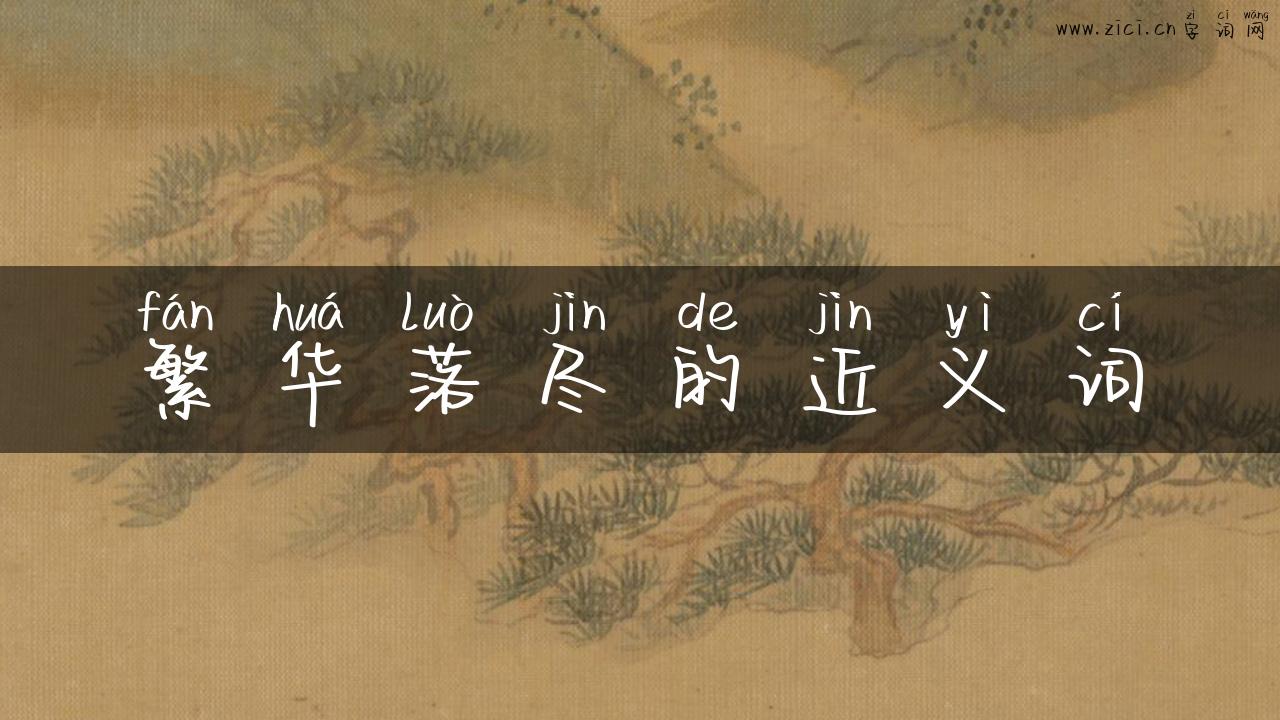 zì cí wǎng
www.zici.cn 字词网
fán huá luò jìn de jìn yì cí
繁华落尽的近义词